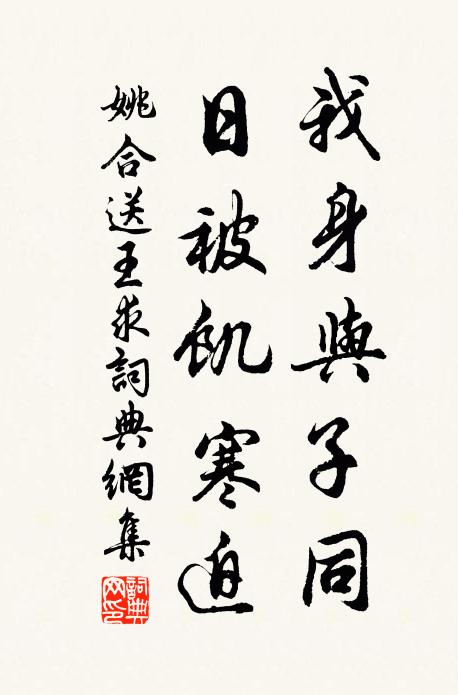 我身與子同
日被飢寒迫
姚合送王求詞典網集
詞典网印